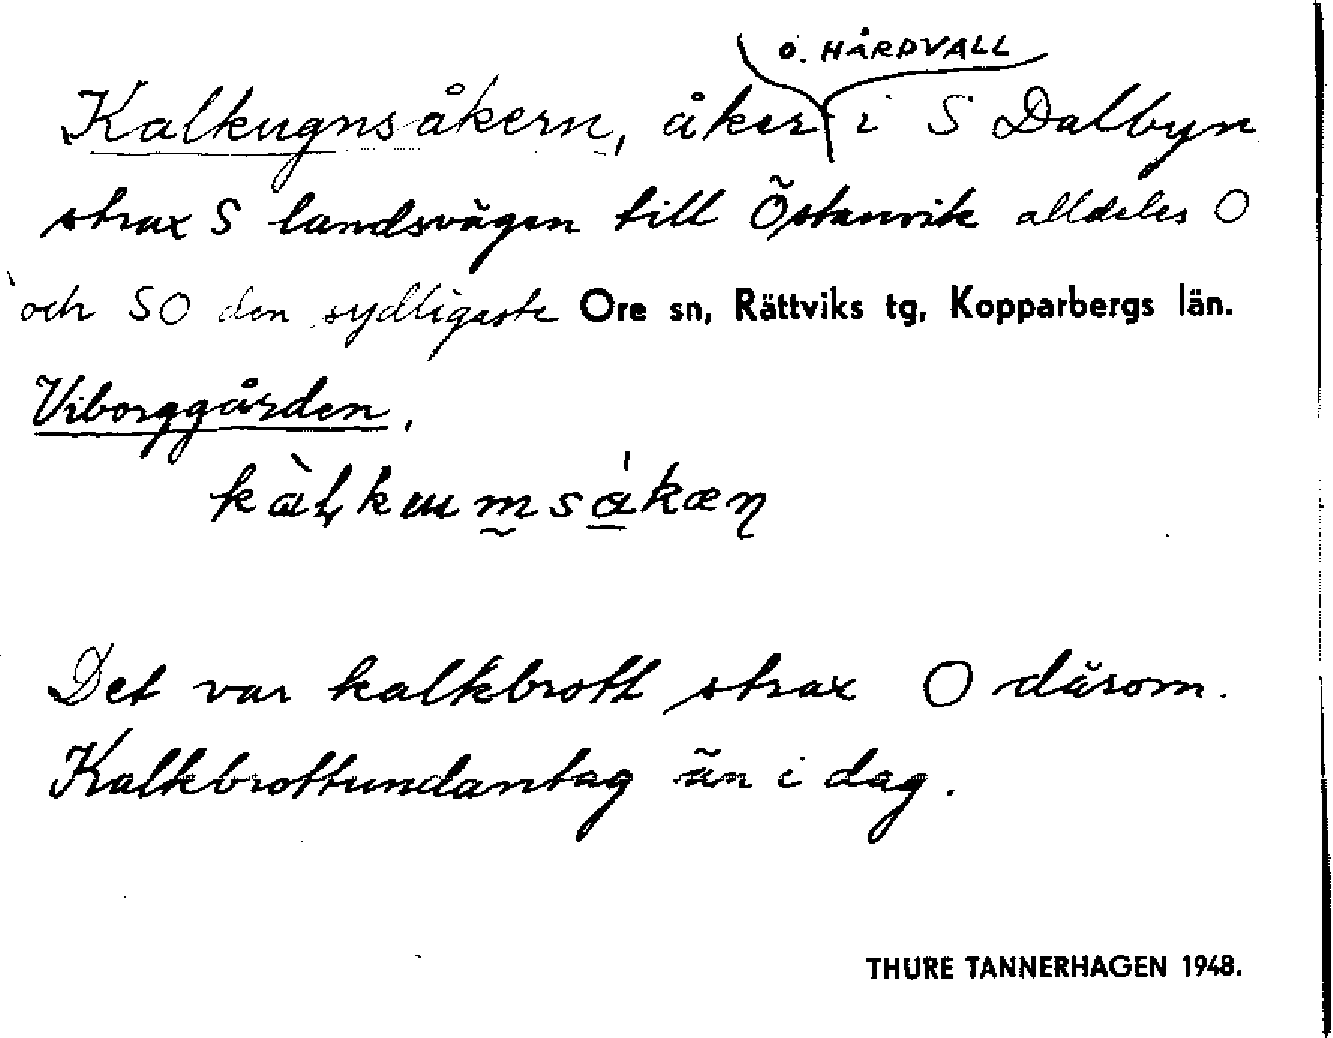 O. HÅRDVALL
Kalkugnsåkern, åker i S Dalbyn
strax S landsvägen till Östanvik alldeles O
och SO den sydligaste Ore sn, Rättviks tg, Kopparbergs län.
Viborggården.
Det var kalkbrott strax O därom.
Kalkbrottundantag än i dag.
THURE TANNERHAGEN 1948.